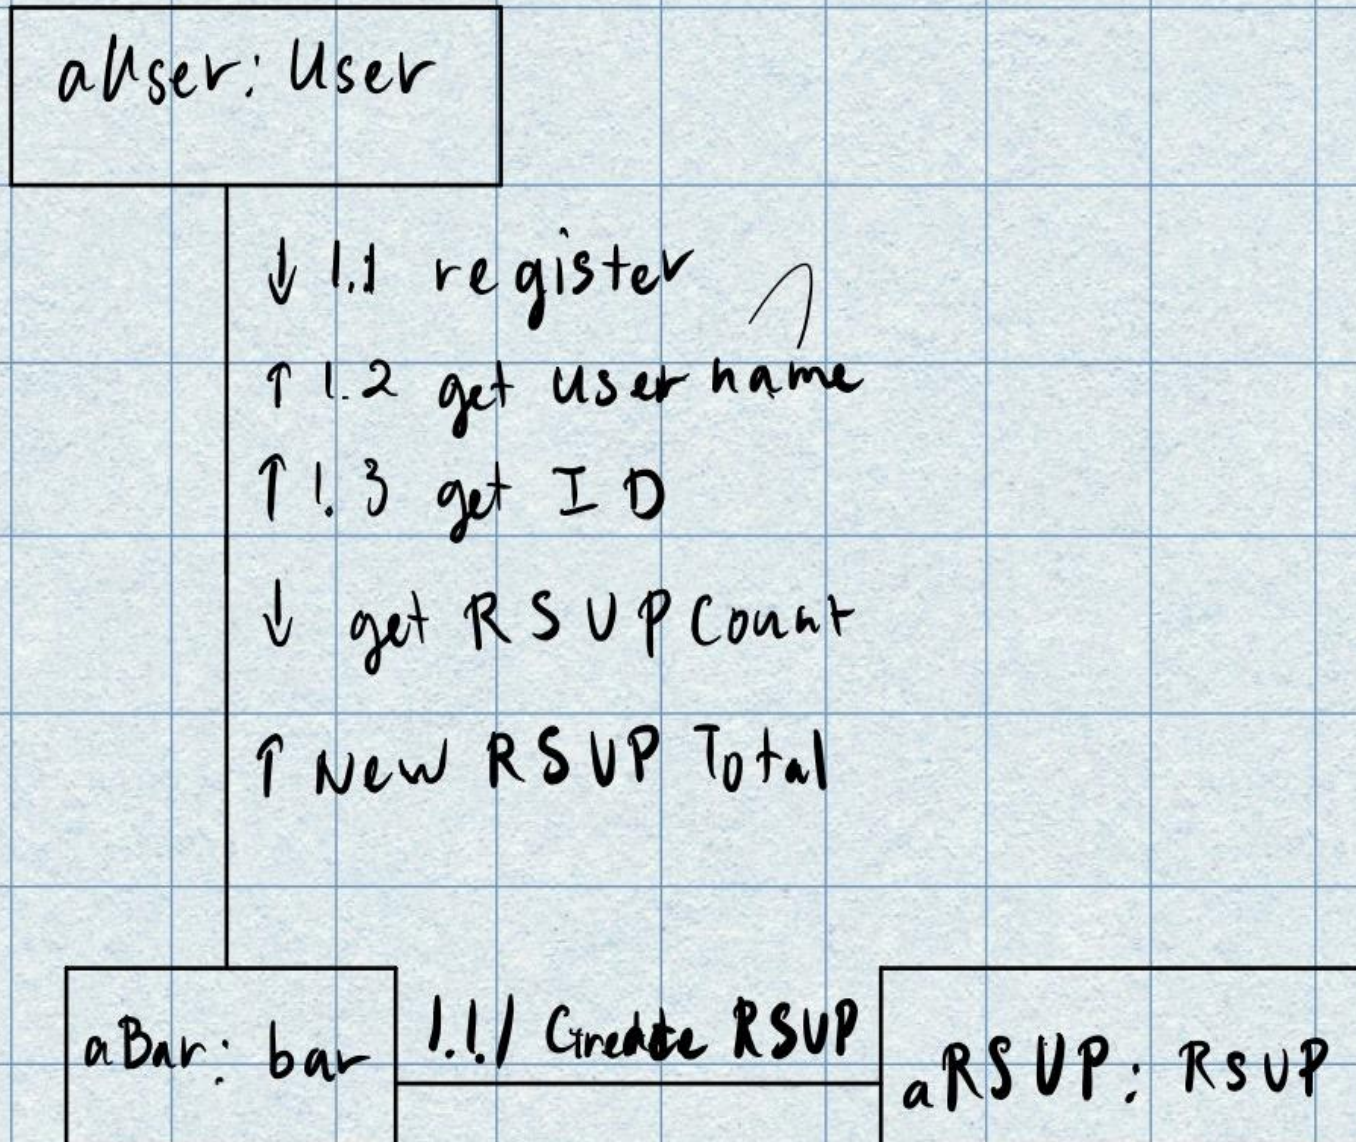 aUser: User
↓ 1.1 register
↑ 1.2 get username
↑ 1.3 get ID
↓ get RSVPCount
↑ New RSVP Total
aBar: bar
1.1.1 Create RSVP
aRSVP: RSVP